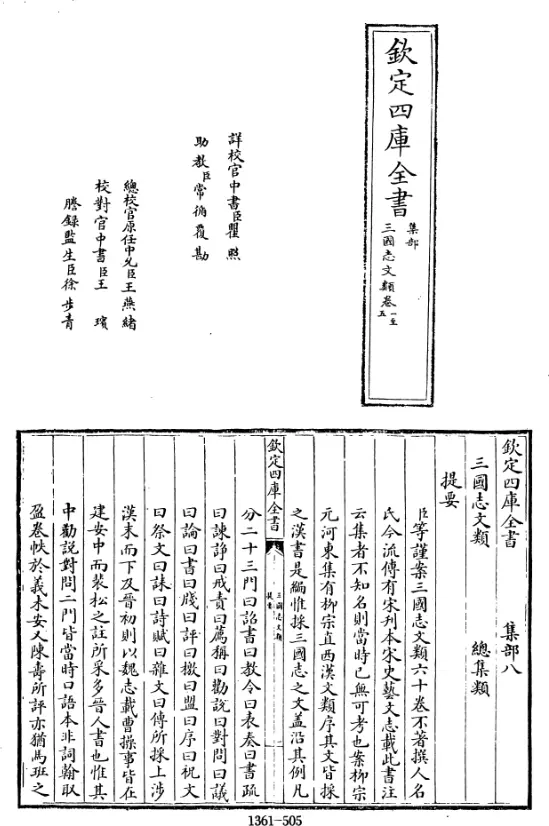 欽定四庫全書
集部
三國志文類卷一至
五
詳校官中書臣瞿照
助教臣常循覆勘
總校官原任中允臣王燕緒
校對官中書臣王璸
謄錄監生臣徐步青
欽定四庫全書 集部八
三國志文類 總集類
提要
臣等謹案三國志文類六十卷不著撰人名
氏今流傳有宋刋本宋史藝文志載此書注
云集者不知名則當時已無可考也案柳宗
元河東集有柳宗直西漢文類序其文皆採
之漢書是編惟採三國志之文蓋沿其例凡
欽定四庫全書
三國志文類
提要
分二十三門曰詔書曰教令曰表奏曰書疏
曰諫諍曰戒責曰薦稱曰勸說曰對問曰議
曰論曰書曰牋曰評曰檄曰盟曰序曰祝文
曰祭文曰誄曰詩賦曰雜文曰傳所採上涉
漢末而下及晉初則以魏志載曹操事皆在
建安中而裴松之註所采多晉人書也惟其
中勸說對問二門皆當時口語本非詞翰取
盈卷帙於義未安又陳壽所評亦猶馬班之
1361-505